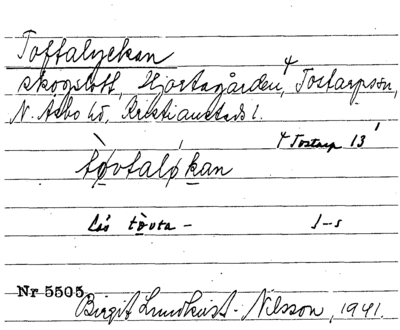 Toftalyckan
skogslott, Hjortagården, 4 Tostarps sn,
N. Åsbo hd, Kristianstads l.
4 Tostarp 13¹
tò̠vtaló̠kan
Läs tò̠vta –
J–s
Nr 5505
Birgit Lundkvist-Nilsson, 1941.